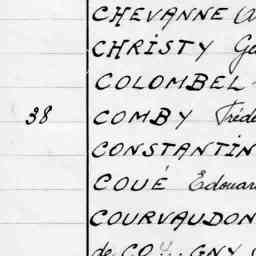 CHEVANNE
CHRISTY
COLOMBEL
38 COMBY
CONSTANTIN
COUÉ Edouar
COURVAUDON
de